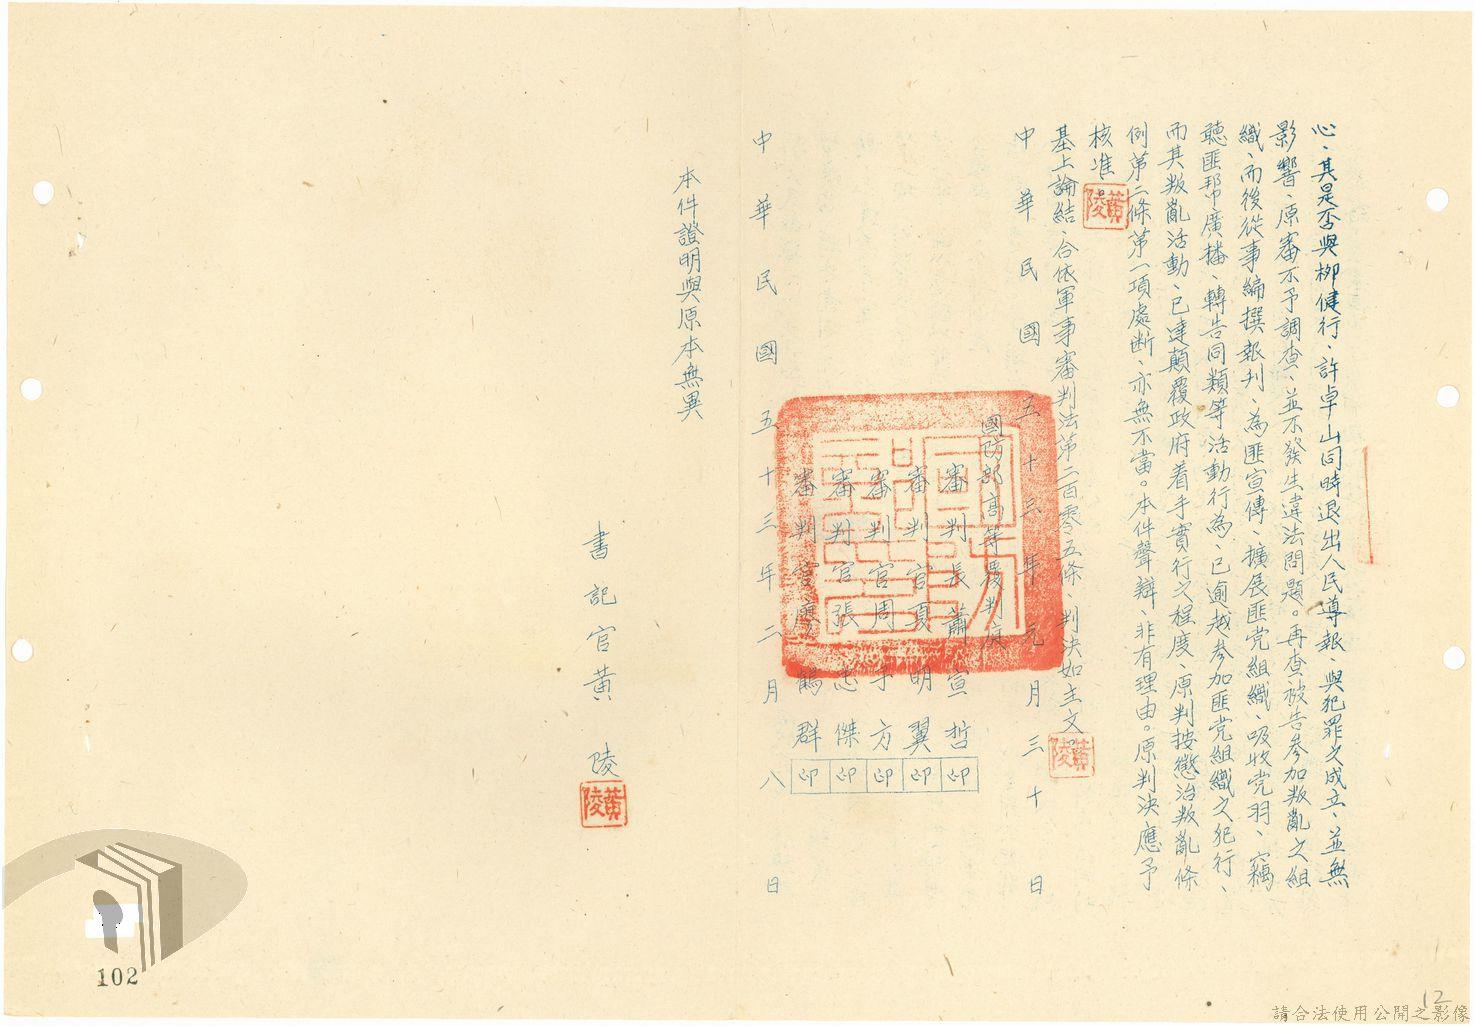 心、其是否與柳健行、許卓山同時退出人民導報、與犯罪之成立、並無
影響、原審不予調查、並不發生違法問題。再查被告參加叛亂之組
織、而後從事編撰報刊、為匪宣傳、擴展匪党組織、吸收党羽、竊
聽匪幇廣播、轉告同類等活動行為、已逾越參加匪党組織之犯行、
而其叛亂活動、已達顛覆政府着手實行之程度、原判按懲治叛亂條
例第二條第一項處断、亦無不當。本件聲辯、非有理由。原判決應予
核准。
黃陵
基上論結、合依軍事審判法第二百零五條、判決如主文。
黃陵
中華民國五十三年元月三十日
國防部高等覆判庭
審判長蕭宣哲印
審判官頁明翼印
審判官周子方印
審判官張志傑印
審判官廖鶴群印
中華民國五十三年二月八日
本件證明與原本無異
書記官黃陵
黃陵
102
12
請合法使用公開之影像